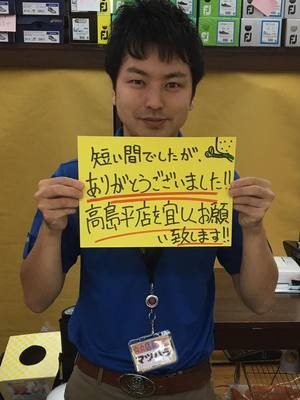 短い間でしたが、
ありがとうございました!!
高島平店を宜しくお願
い致します!!
マツバラ